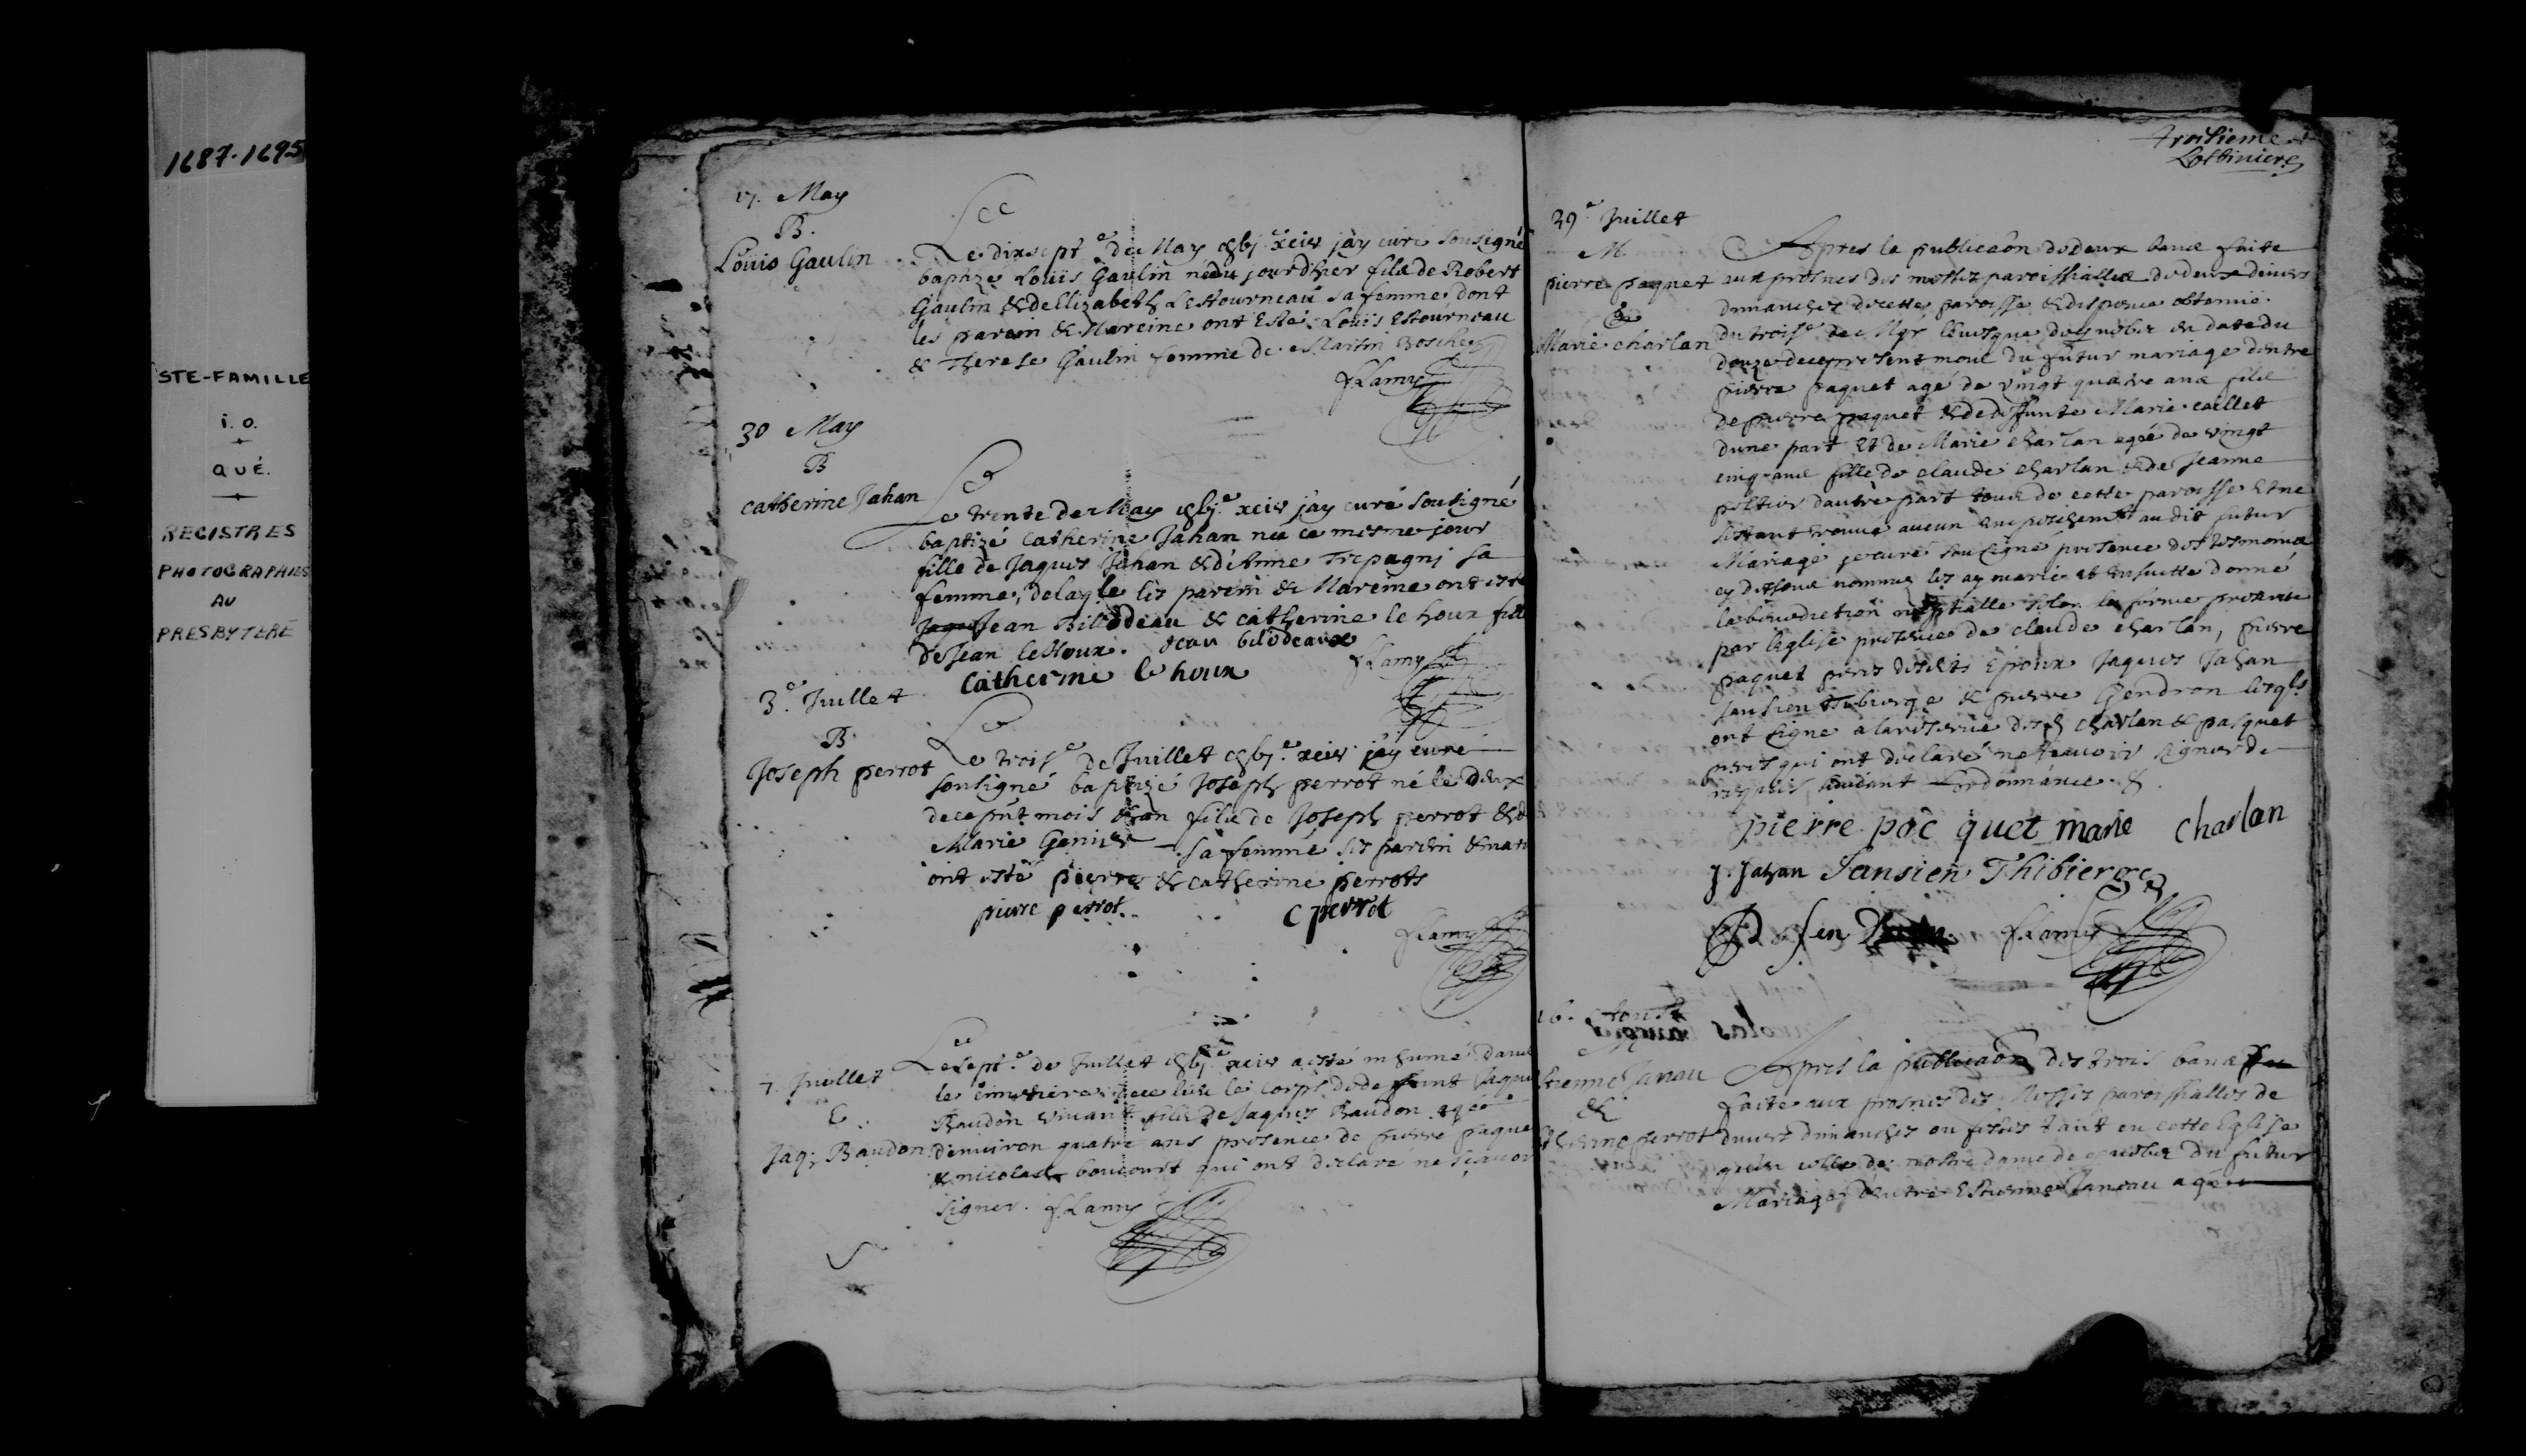 1687-1695
STE-FAMILLE
i. o.
QUÉ.
REGISTRES
PHOTOGRAPHIES
AU
PRESBYTERE
17. May
B.
Loüis Gaulin
Le dix sept.e de May xciv j'ay curé sousigné
baptizé Loüis Gaulin né du jour d'hier fils de Robert
Gaulin & de Elizabeth LeStourneau sa femme, dont
les parein & Mareine ont esté Loüis Estourneau
& Therese Gaulin femme de Martin
f Lamy
30 May
B
catherine Jahan
Le trente de May xciv j'ay curé sousigné
baptizé catherine Jahan née ce mesme jour
fille de Jaques Jahan & d'Anne Trepagnj sa
femme, de laqle les parein & Mareine ont esté
Jean Bilodeau & catherine le houx fille
de Jean le Houx. Jean bilodeaux
f Lamy
Catherine le houx
3.e Juillet
B
Joseph perrot
Le trois.e de Juillet xciv j'ay curé
sousigné baptizé Joseph perrot né le deux
de ce pnt mois & an fils de Joseph perrot & de
Marie Genier sa femme ses parein &
ont esté pierre & catherine perrots
pierre perrot. C perrot
f Lamy
7. Juillet
Jaq; Baudon
Le sept.e de Juillet xciv a esté inhumé dans
le cimetiere de ce lieu le corps de defunt Jaques
Baudon vivant fils de Jaques Baudon agé
d'environ quatre ans presence de pierre paquet
& nicolas boucourt qui ont declaré ne sçavoir
signer. f Lamy
troisieme
Lotbiniere
29.e Juillet
M.
pierre paquet
&
Marie charlan
Apres la publicaôn de deux bans faite
aux prosnes des messes paroissialles de deux divers
dimanches de cette paroisse & dispense obtenue
du trois.e de Mgr l'Evesque de quebec en date du
douze de ce present mois du futur mariage d'entre
pierre paquet agé de vingt quatre ans fils
de pierre paquet & de deffunte Marie caillet
d'une part Et de Marie charlan agée de vingt
cinq ans fille de claude charlan & de Jeanne
d'autre part tous de cette paroisse Et ne
s'estant trouvé aucun empeschemt au dit futur
Mariage je curé sousigné presence des tesmoins
cy dessous nommez les ay mariés et ensuitte donné
la benediction nuptialle selon la forme prescrite
par l'Eglise presence de claude charlan, pierre
paquet peres desdits Epoux Jaques Jahan
Jansien Thibierge & pierre Gendron lesqls
ont signé a la reserve desd charlan & pasquet
peres qui ont declaré ne scauoir signer de
requis suivant l'ordonnance.
pierre pacquet marie charlan
J. Jahan Jansien Thibierge
f Lamy
16. Aoust
Etienne Janeau
&
perrot
Apres la publicaôn des trois bans
faite aux prosnes des Messes paroissialles de
divers dimanches ou festes tant en cette Eglise
qu'en celle de nostre dame de quebec du futur
Mariage d'entre Estienne Janeau agé